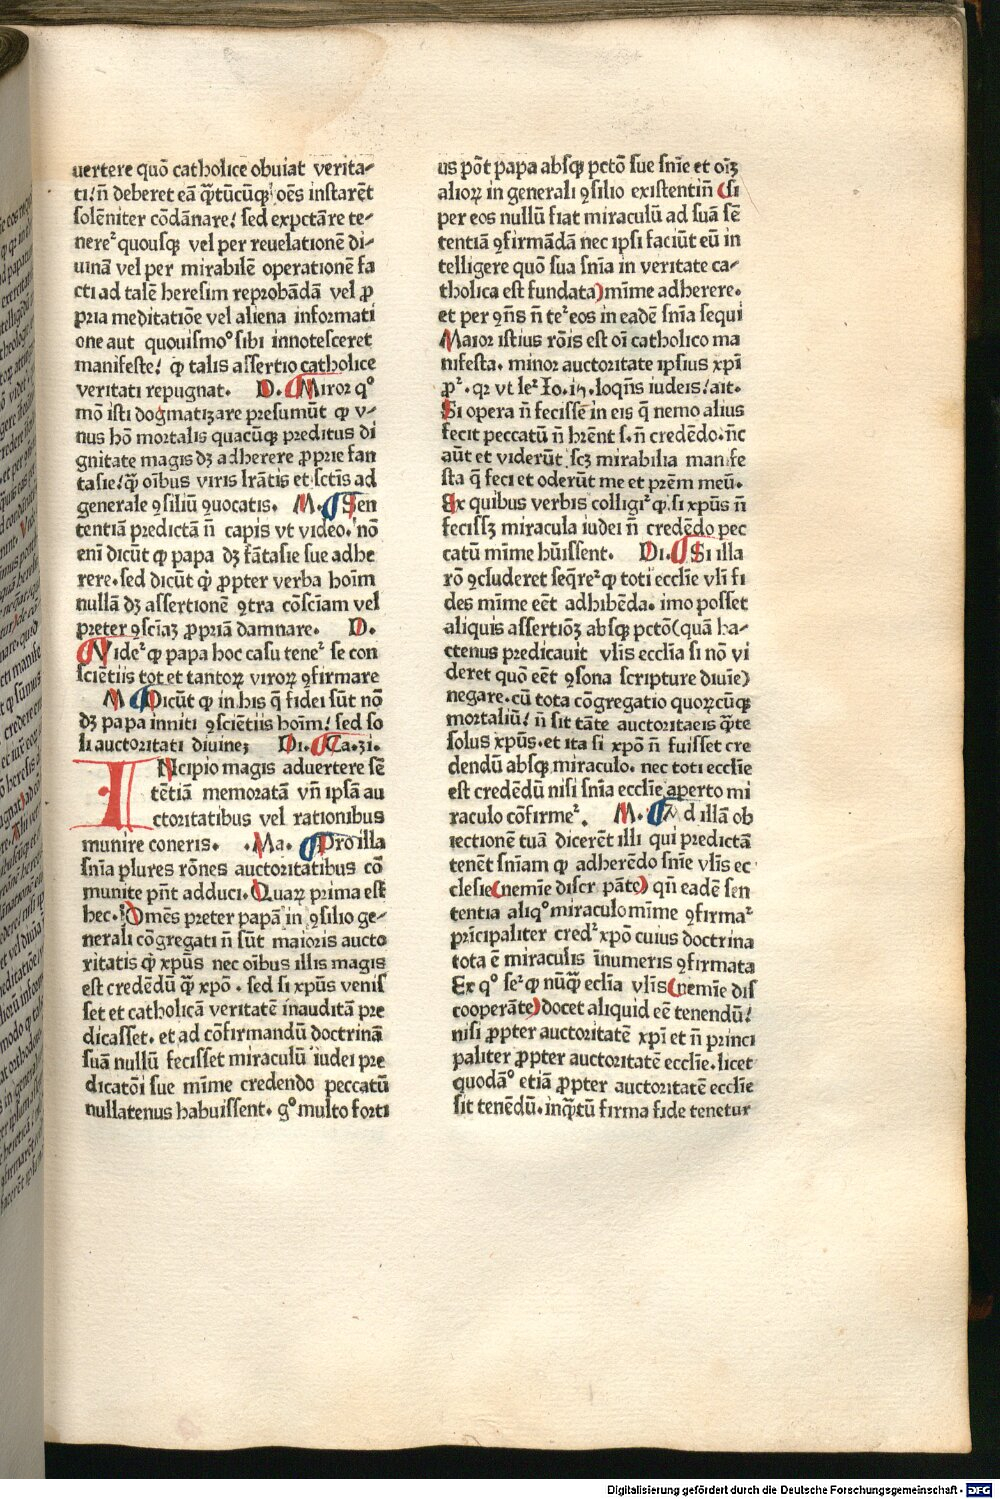 uertere quō catholice obuiat verita⸗
ti! n̄ deberet eā q̄tūcūqꝫ oēs instarēt
solēniter cōdānare! sed expctāre te⸗
nere² quousqꝫ vel per reuelationē di⸗
uinā vel per mirabilē operationē fa
cti ad talē heresim reprobādā vel ꝓ
pria meditatiōe vel aliena informati
one aut quouismo° sibi innotesceret
manifeste! ꝙ talis assertio catholice
veritati repugnat. D. Miror q°
mō isti dogmatizare presumūt ꝙ v⸗
nus hō mortalis quacūqꝫ preditus di
gnitate magis dꝫ adherere ꝓprie fan
tasie! q̄ oībus viris lrātis et sctīs ad
generale ꝯsiliū ꝯuocatis. M. Sen
tentiā predictā n̄ capis vt video. nō
enī dicūt ꝙ papa dꝫ fātasie sue adhe
rere. sed dicūt ꝙ ꝓpter verba hoīm
nullā dꝫ assertionē ꝯtra cōsciam vel
preter ꝯsciaꝫ ꝓpriā damnare. D.
Vide² ꝙ papa hoc casu tene² se con
sciētiis tot et tantoꝝ viroꝝ ꝯfirmare
M Dicūt ꝙ in his q̄ fidei sūt nō
dꝫ papa inniti ꝯsciētiis hoīm! sed so
li auctoritati diuineꝫ Di. Ca. 3i.
INcipio magis aduertere sē
tētiā memoratā vn̄ ipsā au
ctoritatibus vel rationibus
munire coneris. .Ma. Pro illa
snīa plures rōnes auctoritatibus cō
munite pn̄t adduci. Quaꝝ prima est
hec. Omēs preter papā in ꝯsilio ge⸗
nerali cōgregati n̄ sūt maioris aucto
ritatis ꝙ xp̄us nec oībus illis magis
est credēdū q̄ xpō . sed si xp̄us venis
set et catholicā veritatē inauditā pre
dicasset. et ad cōfirmandū doctrinā
suā nullū fecisset miraculū iudei pre
dicatōi sue mīme credendo peccatū
nullatenus habuissent. g° multo forti
us pōt papa absqꝫ pctō sue snīe et oīꝫ
alioꝝ in generali ꝯsilio existentiū (si
per eos nullū fiat miraculū ad suā sē
tentiā ꝯfirmādā nec ipsi faciūt eū in
telligere quō sua snīa in veritate ca⸗
tholica est fundata) mīme adherere.
et per ꝯn̄s n̄ te² eos in eadē snīa sequi
Maior istius rōis est oī catholico ma
nifesta. minor auctoritate ipsius xp̄i
ꝓ². qꝛ vt le² Io. 15. loqn̄s iudeis! ait.
Si opera n̄ fecissē in eis q̄ nemo alius
fecit peccatū n̄ hrēnt s. n̄ credēdo. n̄c
aūt et viderūt scꝫ mirabilia manife
sta q̄ feci et oderūt me et prēm meū.
Ex quibus verbis colligi² ꝙ si xp̄us n̄
fecissꝫ miracula iudei n̄ credēdo pec
catū mīme hūissent. Di. Si illa
rō ꝯcluderet seq̄re² ꝙ toti ecclīe vlī fi
des mīme eēt adhibēda. imo posset
aliquis assertiōꝫ absqꝫ pctō(quā ha⸗
ctenus predicauit vlīs ecclīa si nō vi
deret quō eēt ꝯsona scripture diuīe)
negare. cū tota cōgregatio quoꝝcūqꝫ
mortaliū! n̄ sit tāte auctoritaeis q̄te
solus xp̄us. et ita si xpō n̄ fuisset cre
dendū absqꝫ miraculo. nec toti ecclīe
est credēdū nisi snīa ecclīe aperto mi
raculo cōfirme². M. Ad illā ob
iectionē tuā dicerēt illi qui predictā
tenēt snīam ꝙ adherēdo snīe vlīs ec
clesie(nemīe discr pāte) qn̄ eadē sen
tentia aliq° miraculo mīme ꝯfirma²
prīcipaliter cred² xpō cuius doctrina
tota ē miraculis īnumeris ꝯfirmata
Ex q° se² ꝙ nūq̄ eclīa vlīs(nemīe dis
cooperāte)docet aliquid eē tenendū!
nisi ꝓpter auctoritatē xp̄i et n̄ princi
paliter ꝓpter auctoritatē ecclīe. licet
quodā° etiā ꝓpter auctoritatē ecclīe
sit tenēdū. inq̄tū firma fide tenetur
Digitalisierung gefördert durch die Deutsche Forschungsgemeinschaft - DFG